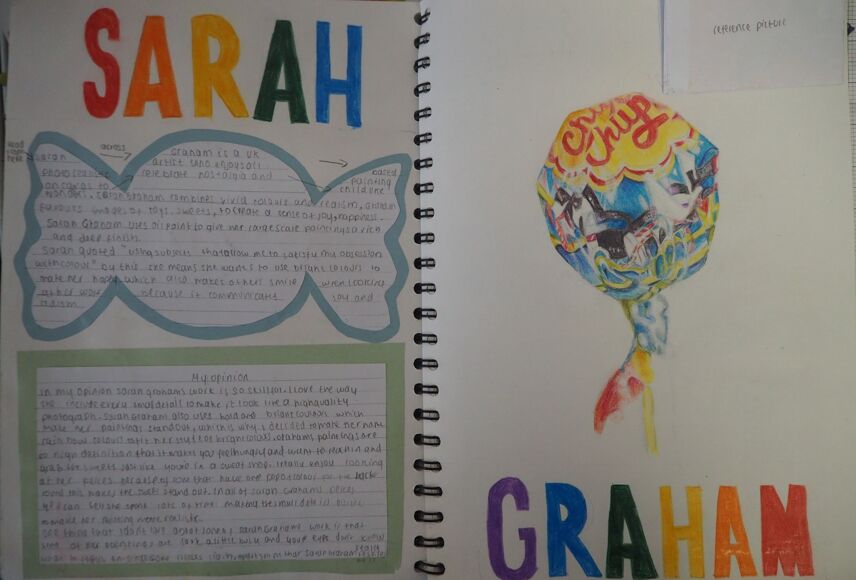 SARAH
read
across
Sarah → Graham is a UK
artist who enjoys oil
based
painting
photorealistic
celebrate nostalgia and
child like
on canvas to
wonder. Sarah Graham combines vivid colours and realism, Graham
favours images of toys, sweets, to create a sense of joy, happiness.
Sarah Graham uses oil paint to give her large scale paintings a rich
and deep finish.
Sarah quoted "using subjects that allow me to satisfy my obsession
with colour" by this she means she wants to use briant colours to
make her happy which also makes others smile when looking
at her work because it communicates joy and
My opinion
In my opinion Sarah grahams work is so skilful. I love the way
she include every small detail to make it look like a high quality
photograph. Sarah Graham also uses bold and briant colours which
make her paintings stand out, which is why I decided to make her name
rainbow colours to fit her style of bright colours. Grahams paintings are
so high definition that it makes you feel hungry and want to reach in and
grab the sweets just like you're in a sweet shop. I really enjoy looking
at her peices because of how that have one pop of colour for the back
round this makes the sweets stand out. In all of Sarah Grahams peices
you can tell she spent lots of time making the small details
to make her painting more realistic.
One thing that I don't like about Sarah Grahams work is that
some of her paintings are look a little busy and your eyes don't know
where
to look
reference picture
Chupa
Chup
GRAHAM